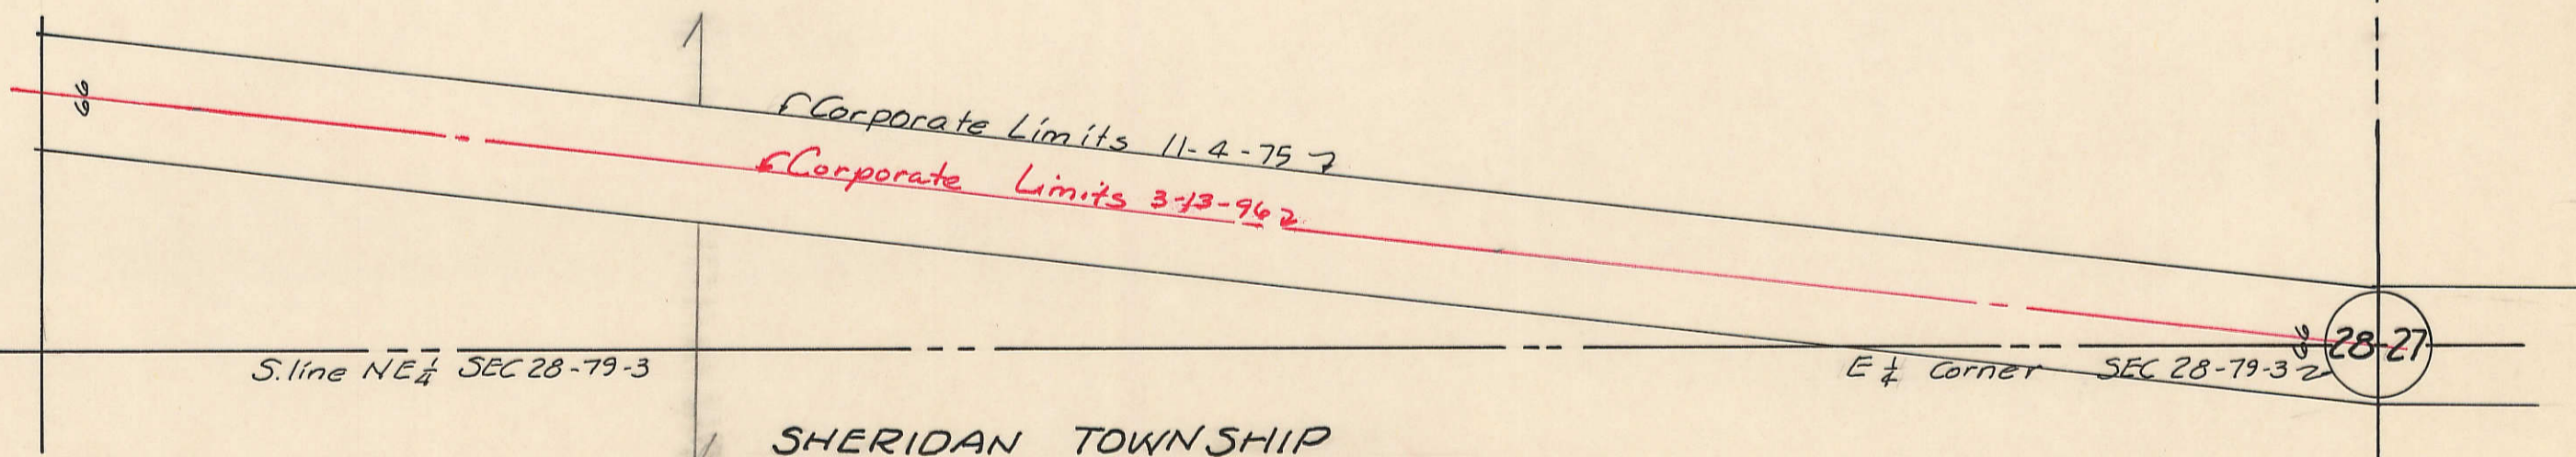 66
Corporate Limits 11-4-75
Corporate Limits 3-13-96
66
28-27
S. line NE 1/4 SEC 28-79-3
E 1/4 Corner SEC 28-79-3
SHERIDAN TOWNSHIP